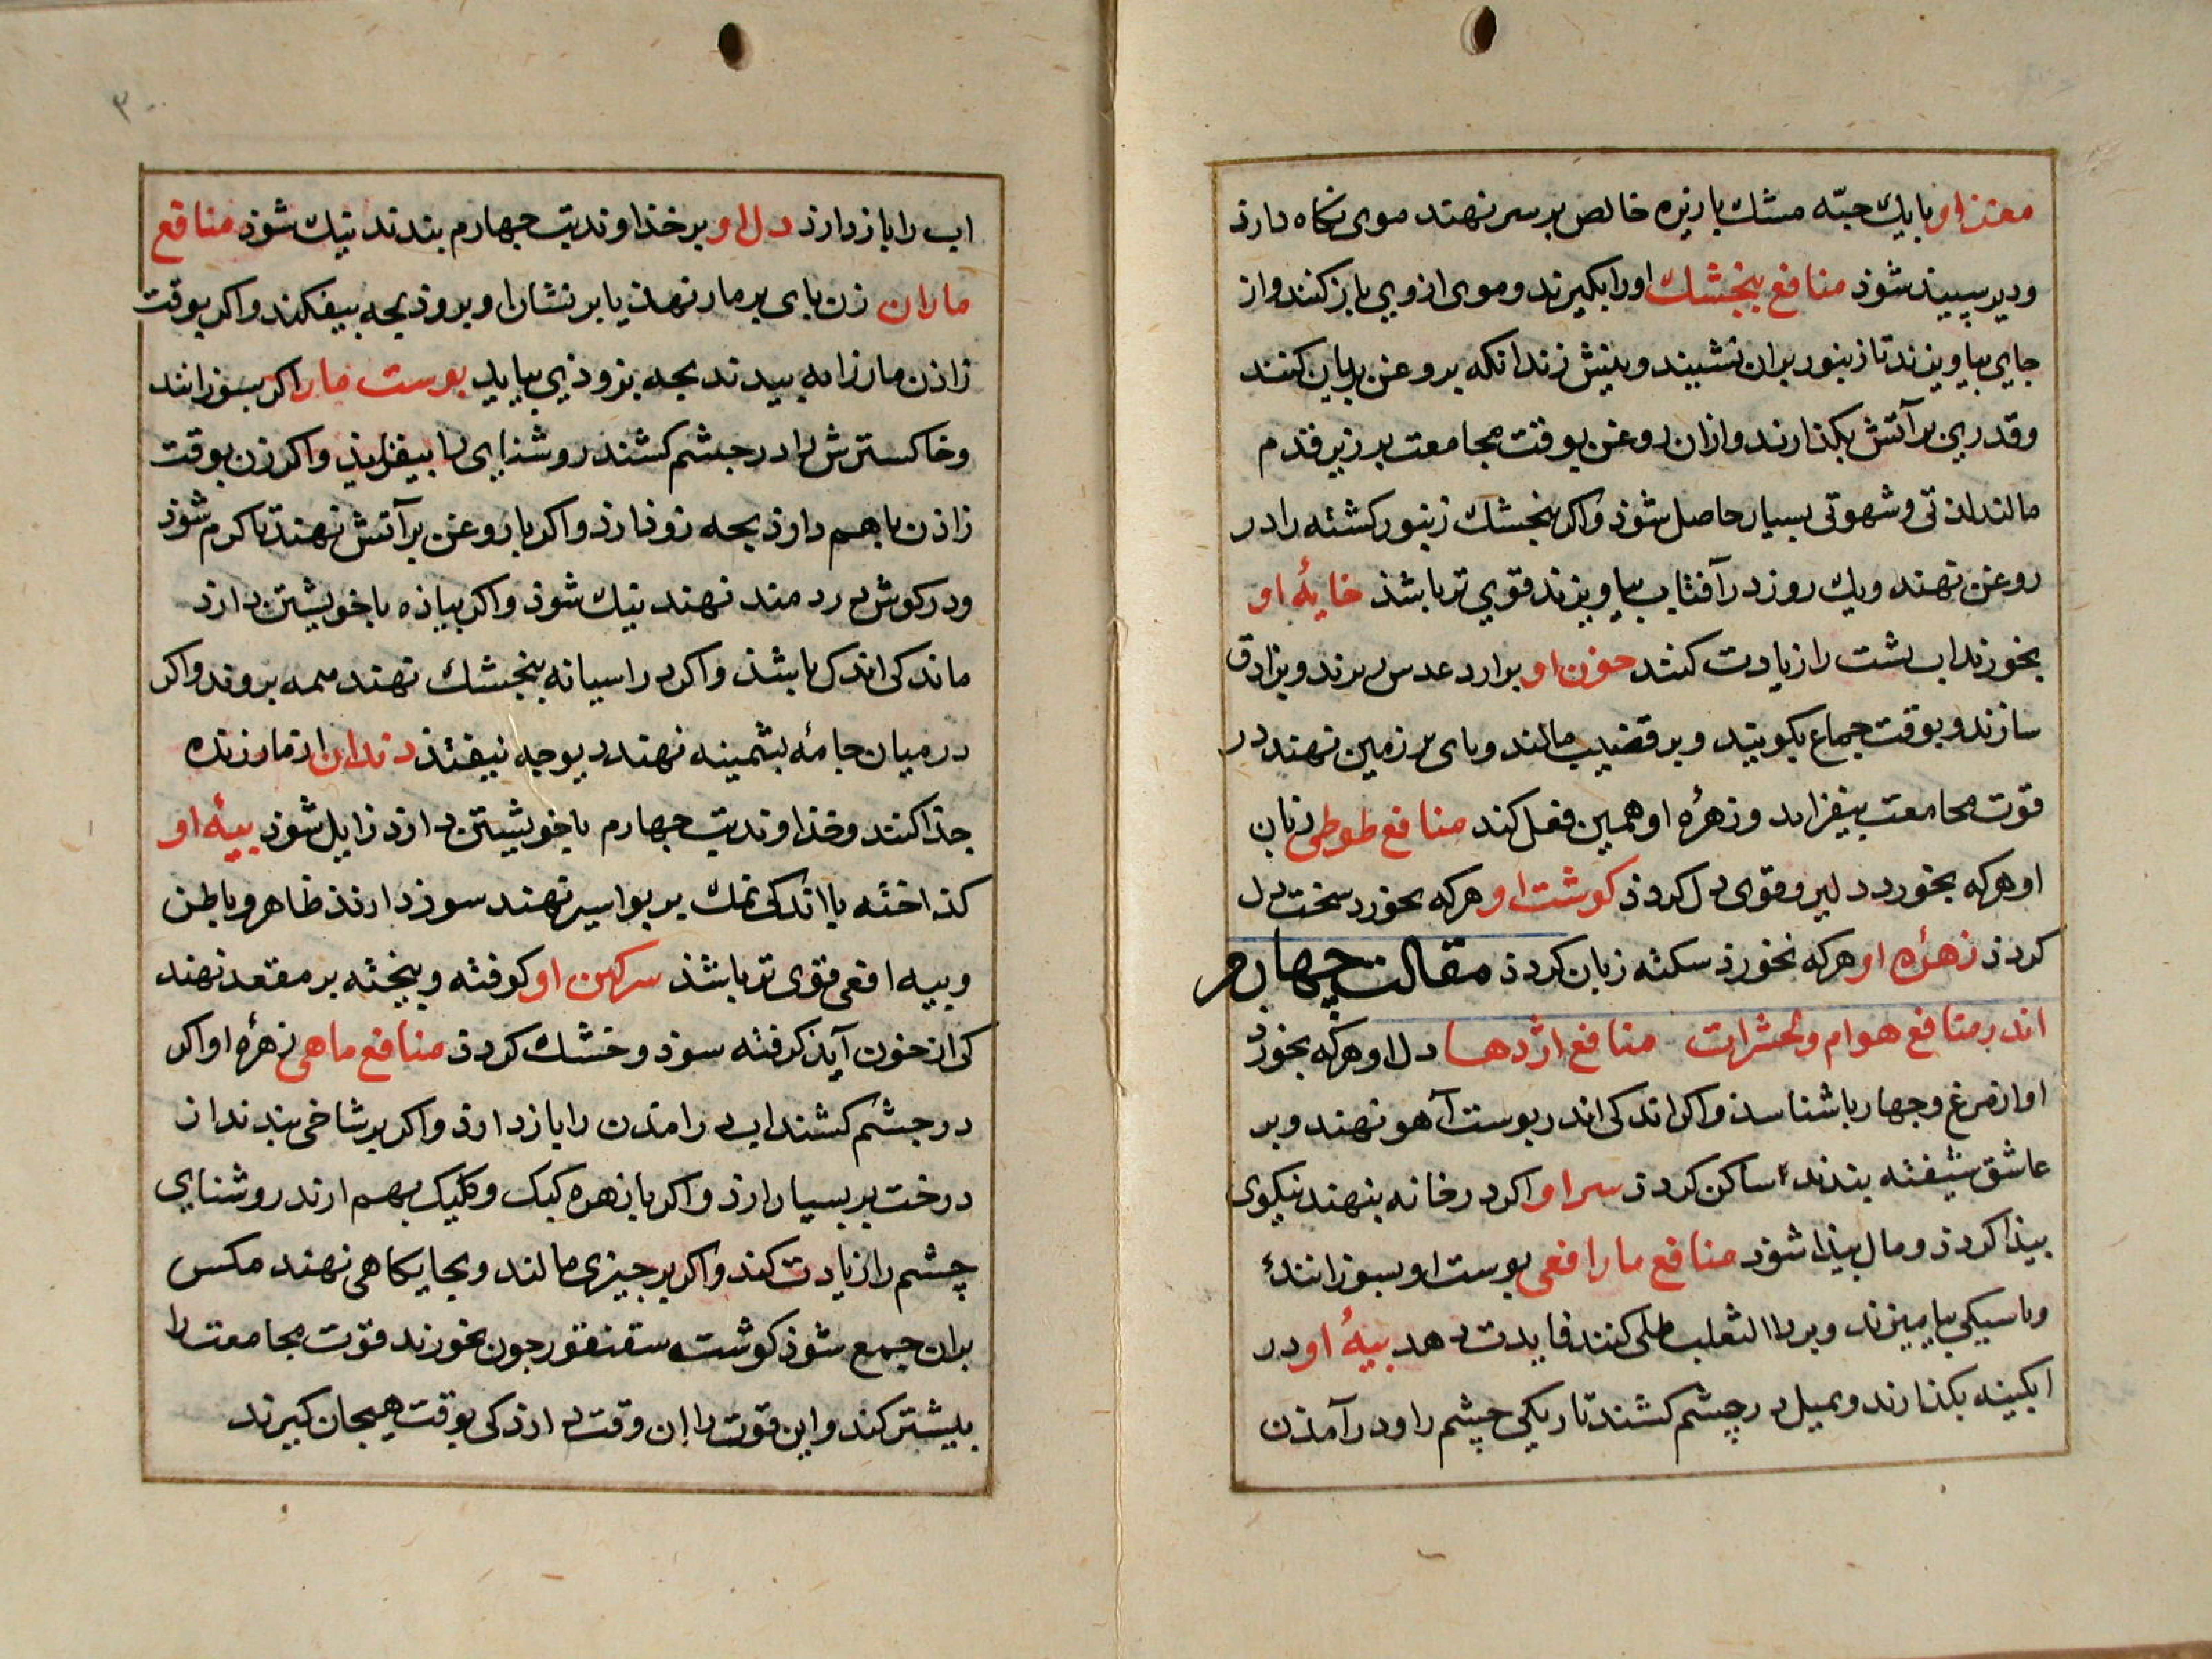 مغز او با یك حبّه مشك با زیره خالص بر سر نهند موی نكاه دارذ
ودیر سپیذ شوذ منافع بنجشك اورا بكیرند وموی از وی باز كنند واز
جایی بیاویزند تا زنبور بران نشیند ونیش زند انكه بروغن بریان كنند
وقدری بر آتش بكذارند وازان روغن بوقت مجامعت بر زیر قدم
مالند لذتی وشهوتی بسیار حاصل شوذ واكر بنجشك زنبور كشته را در
روغن نهند ویك روز در آفتاب بیاویزند قوی تر باشذ خایهٔ او
بخورند اب پشت را زیادت كنند خون او بوارد عدس برند وبنادق
سازند وبوقت جماع بكوبند وبر قضیب مالند وبای بر زمین نهند در
قوت مجامعت بیفزاید وزهرهٔ او همین فعل كند منافع طوطی زبان
او هركه بخورد دلیر وقوی دل كردذ كوشت او هركه بخورد سخت دل
كردذ زهرهٔ او هركه بخورذ سكته زبان كردذ مقالت چهارم
اندر منافع هوام وحشرات منافع اژدها دل او هركه بخورذ
اواز مرغ وجهاربا شناسذ واكر اندكی اندر بوست آهو نهند وبر
عاشق شیفته بندند ساكن كردذ سر او اكر در خانه بنهند نیكوی
بیذا كردذ ومال بیذا شوذ منافع مار افعی بوست او بسوزانند
وبا سیكی بیامیزند وبر داالثعلب طلی كنند فایدت دهد بیهٔ او در
ابكینه بكذارند وبمیل در چشم كشند تاریكی چشم را ودر آمذن
اب را باز دارذ دل او بر خذاوند تب جهارم بندند نیك شوذ منافع
ماران زن بای بر مار نهذ یا بر نشار او برود بچه بیفكند واكر بوقت
زاذن مار زابه ببیدند بچه بزوذی بیاید بوست مار اكر بسوزانند
وخاكسترش را در جشم كشند روشنایی را بیفزایذ واكر زن بوقت
زاذن با هم داوذ بچه زوذ ارذ واكر با روغن بر آتش نهند تا كرم شوذ
ودر كوش دردمند نهند نیك شوذ واكر بیاذه با خویشتن دارذ
ماندكی اندك باشذ واكر در اسیانه بنجشك نهند همه بروند واكر
در میان جامهٔ بشمینه نهند دیوجه نیفتذ دندان از مار زنده
جذا كنند وخذاوند تب جهارم با خویشتن دارذ زایل شوذ بیهٔ او
كذاخته با اندكی نمك بر بواسیر نهند سوذ دارذ ظاهر وباطن
وبیه افعی قوی تر باشذ سركین او كوفته وبیخته بر مقعد نهند
كی از خون آیذ كرفته سوذ وخشك كردذ منافع ماهی زهرهٔ او اكر
در جشم كشند اب در امذن را باز دارذ واكر بر شاخی بندند از
درخت بر بسیار ارذ واكر با زهره كبك وكلیك بهم ارند روشنایی
چشم را زیادت كند واكر بر جیزی مالند وبجایكاهی نهند مكس
بران جمع شوذ كوشت سقنقور جون بخورند قوت مجامعت را
بلیشتر كند واین قوت را ان وقت دارذ كی بوقت هیجان كیرند
۳۰